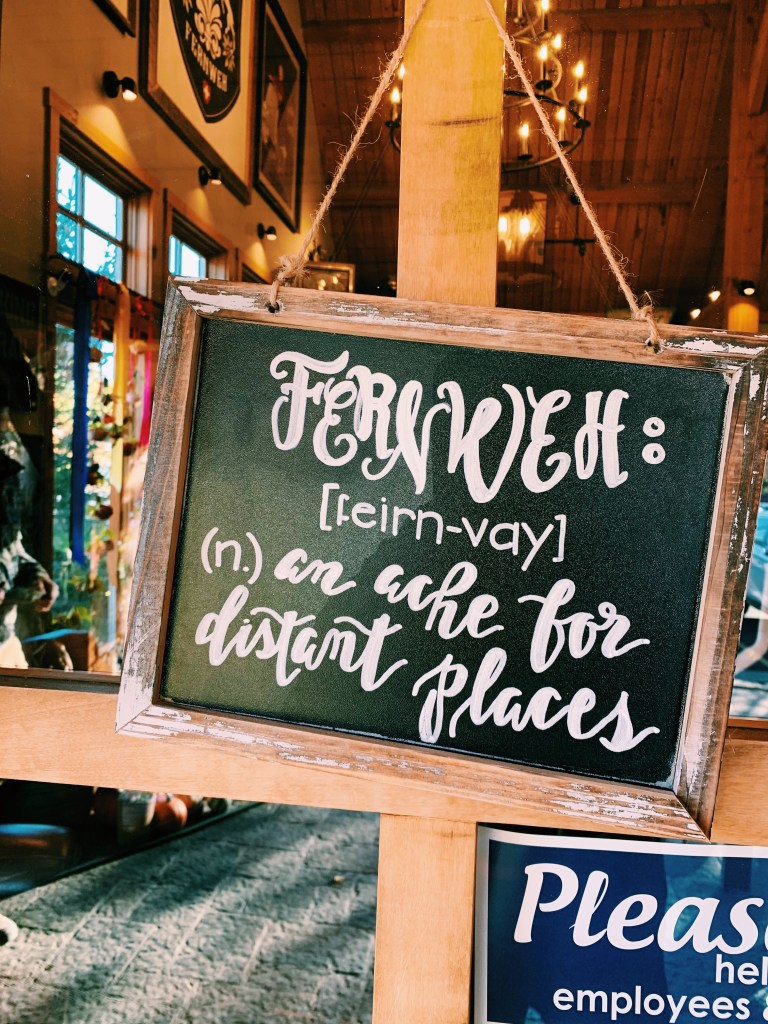 FERNWEH
FERNWEH:
[feirn-vay]
(n.) an ache for
distant places
Pleas
hel
employees &